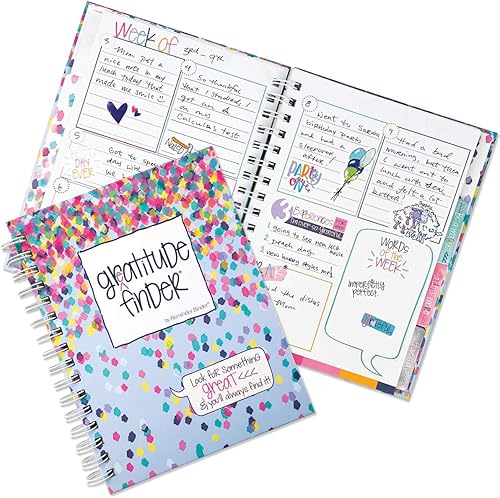 Week of 3rd - 9th
3
Mom put a
nice note in my
lunch today that
made my smile!!
4
So thankful
that I studied!
got an A
on my
Calculus test
5
DAY
EVER
Got to
day
with
6
8
Went to Sarah's
birthday party
and had a
sleepover
after!
PARTY
ON
9
Had a bad
morning, but then
I went out to
lunch with
and felt a lot
better!
3 EXPERIENCES
1 going to see
2 beach day
3 new
the dishes
Mom
WORDS
of the
WEEK
imperfectly
perfect
gratitude
finder
by Reminder Binder
Look for something
great <<<
& you'll always find it!